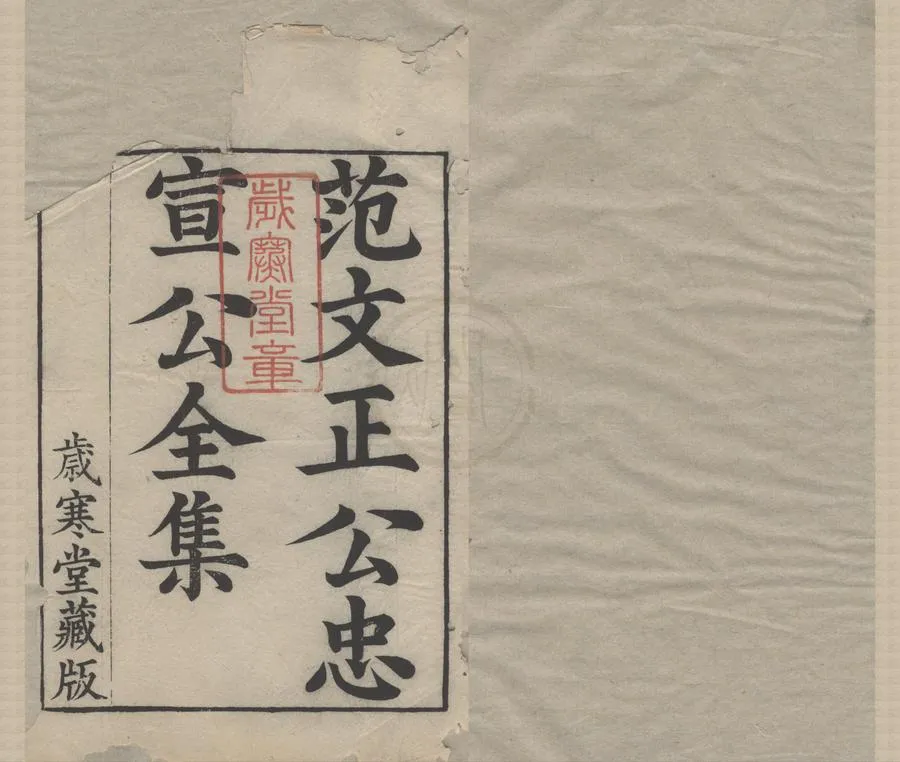 范文正公忠
宣公全集
歲寒堂藏版
歲寒堂章